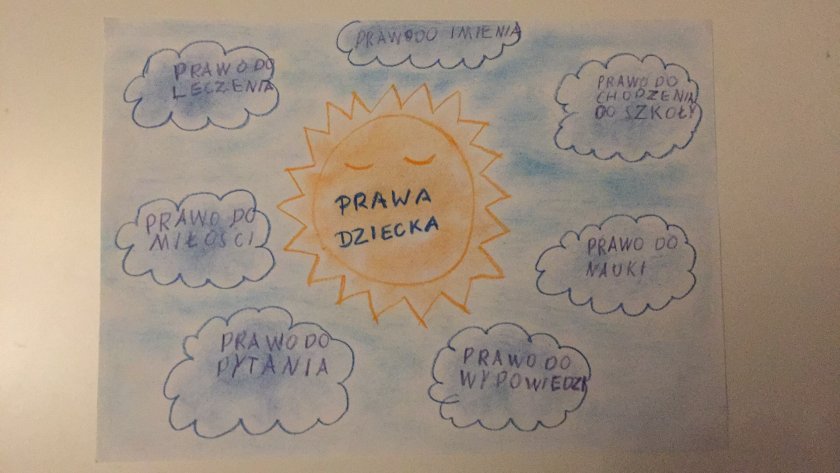 PRAWO DO IMIENIA
PRAWO DO
LECZENIA
PRAWO DO
CHODZENIA
DO SZKOŁY
PRAWA
DZIECKA
PRAWO DO
MIŁOŚCI
PRAWO DO
NAUKI
PRAWO DO
PYTANIA
PRAWO DO
WYPOWIEDZI